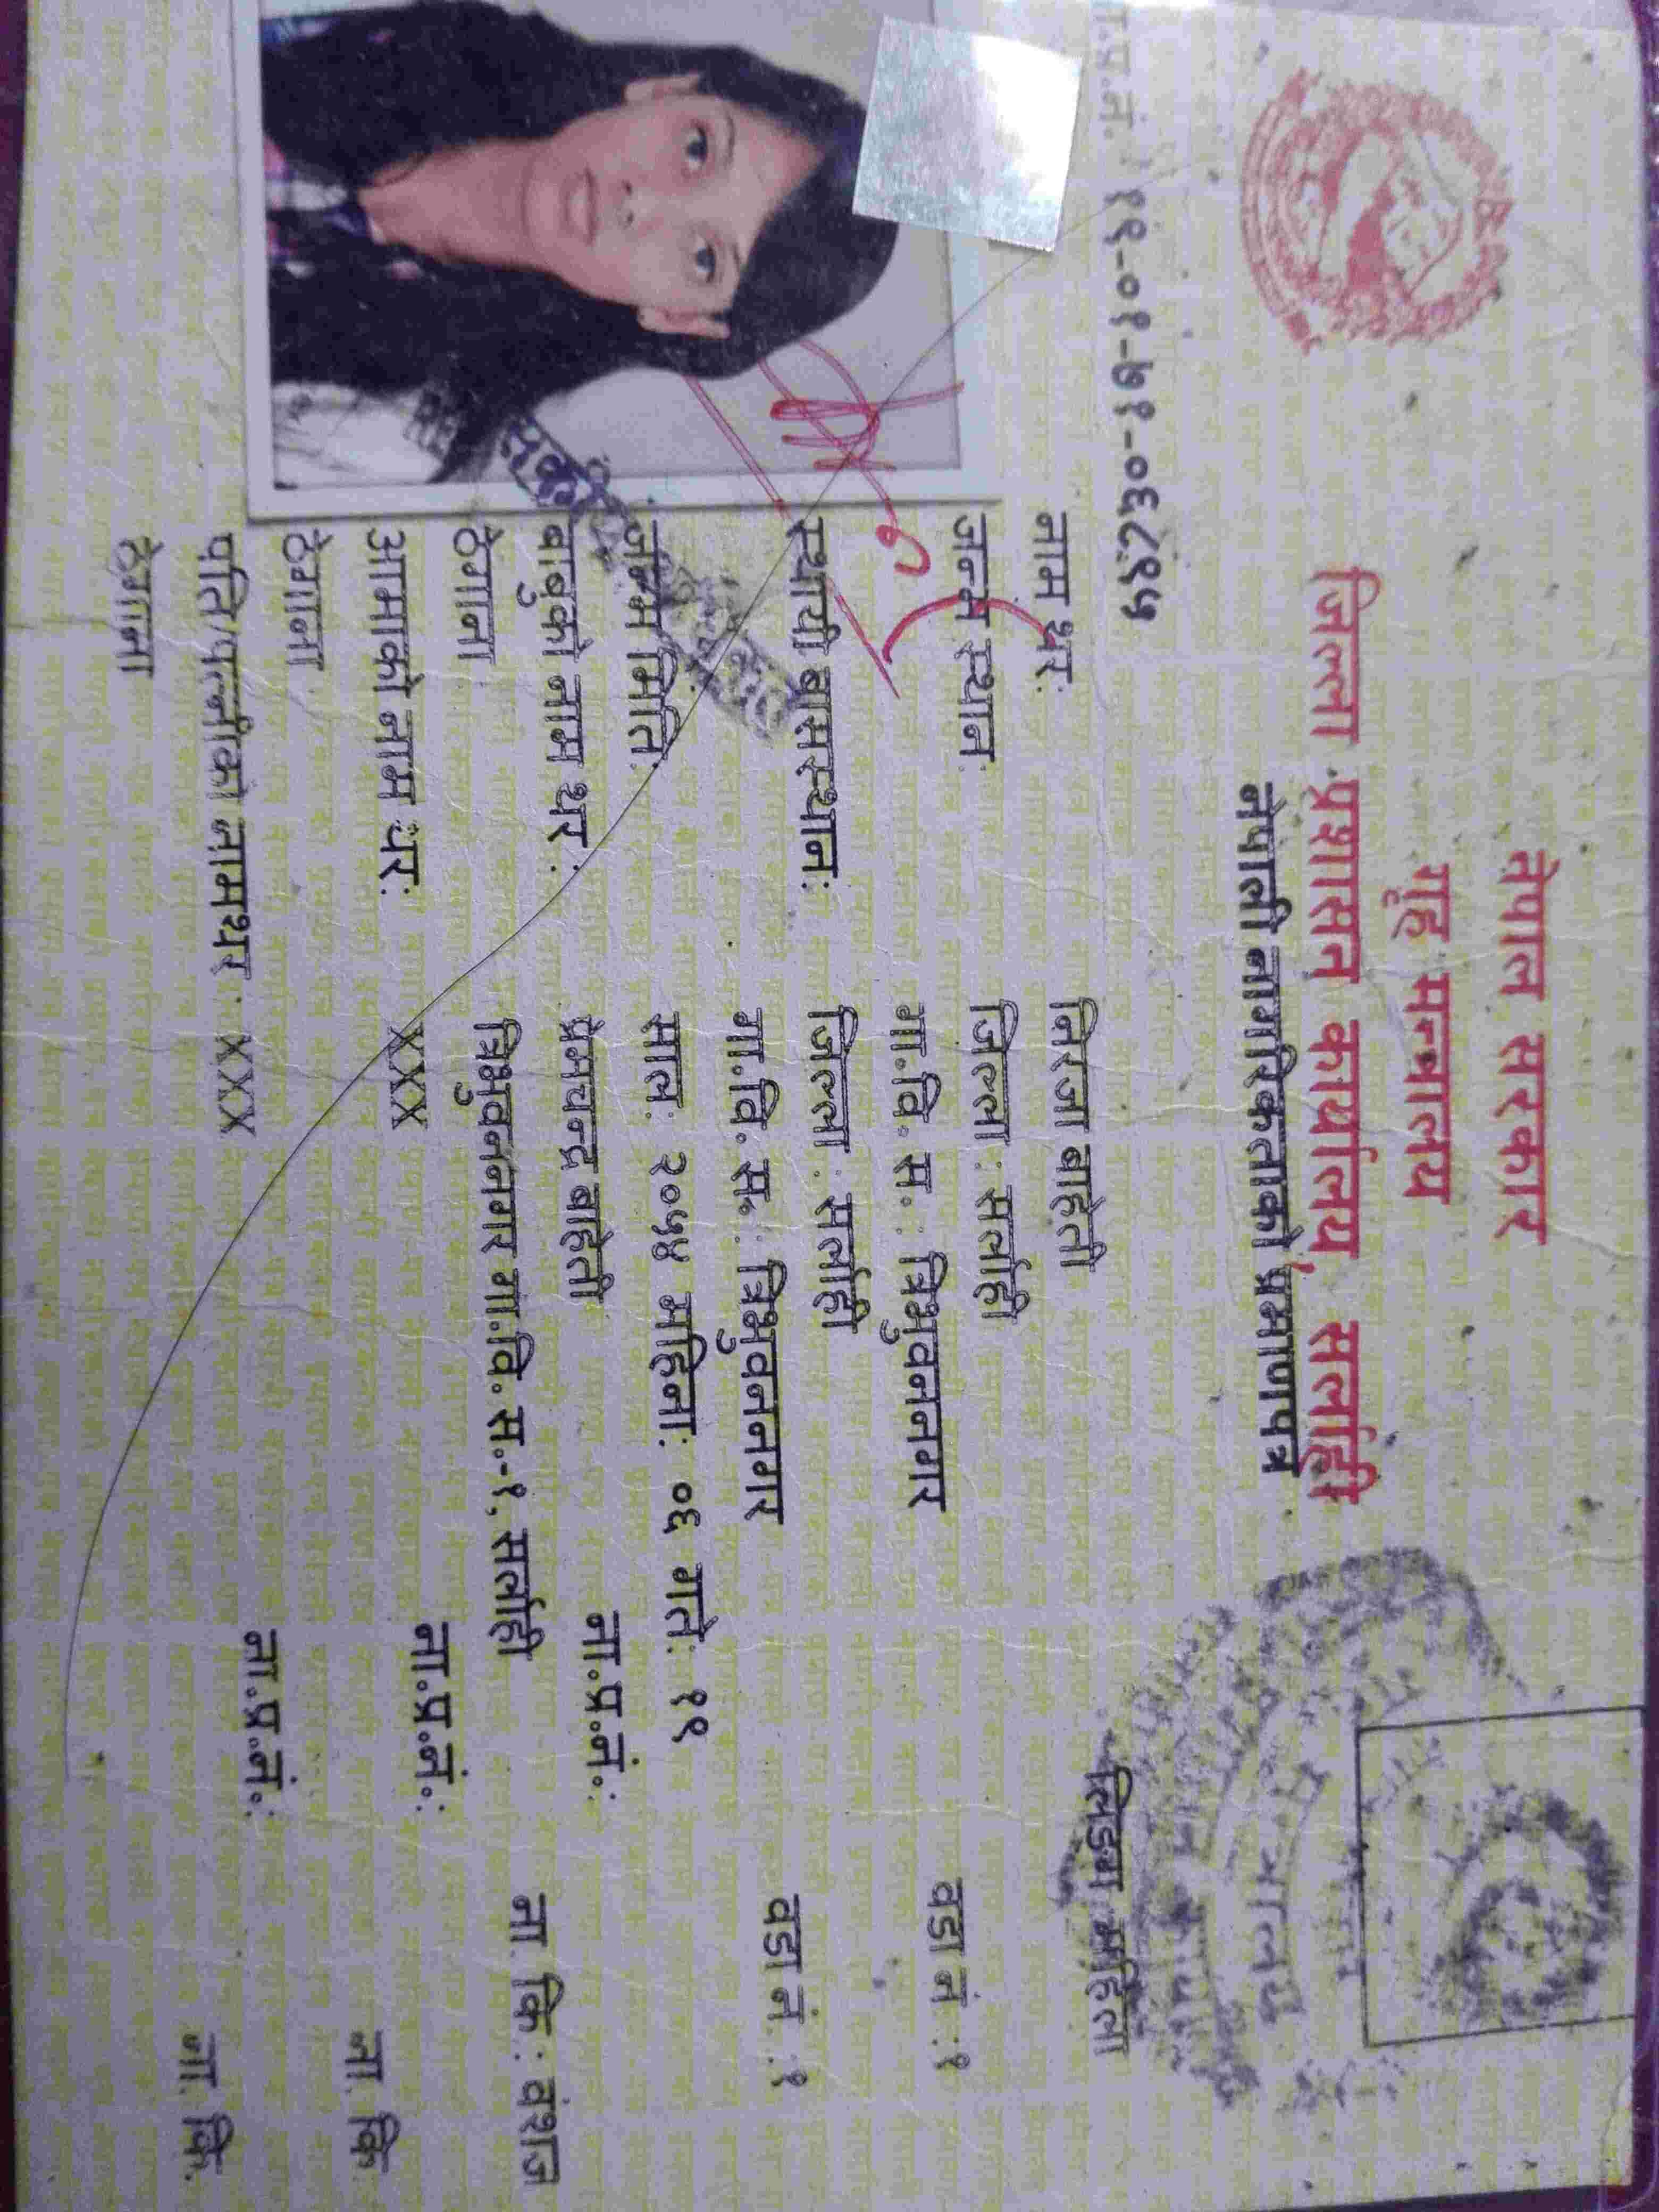 नेपाल सरकार
गृह मन्त्रालय
जिल्ला प्रशासन कार्यालय, सर्लाही
नेपाली नागरिकताको प्रमाणपत्र
प्र.नं. १९-०१-७१-०६८९५
नाम थर: निरजा बाहेती लिङ्ग : महिला
जन्म स्थान: जिल्ला : सर्लाही
गा.वि. स. : त्रिभुवननगर वडा नं :१
स्थायी बासस्थान: जिल्ला : सर्लाही
गा.वि. स. : त्रिभुवननगर वडा नं. :१
जन्म मिति: साल: २०५४ महिना: ०६ गते: १९
बाबुको नाम थर : प्रेमचन्द्र बाहेती ना.प्र.नं.:
ठेगाना त्रिभुवननगर गा.वि. स.-१, सर्लाही ना. कि : वंशज
आमाको नाम थर: XXX ना.प्र.नं.:
ठेगाना ना. कि.
पति/पत्नीको नामथर : XXX ना.प्र.नं.:
ठेगाना ना. कि.